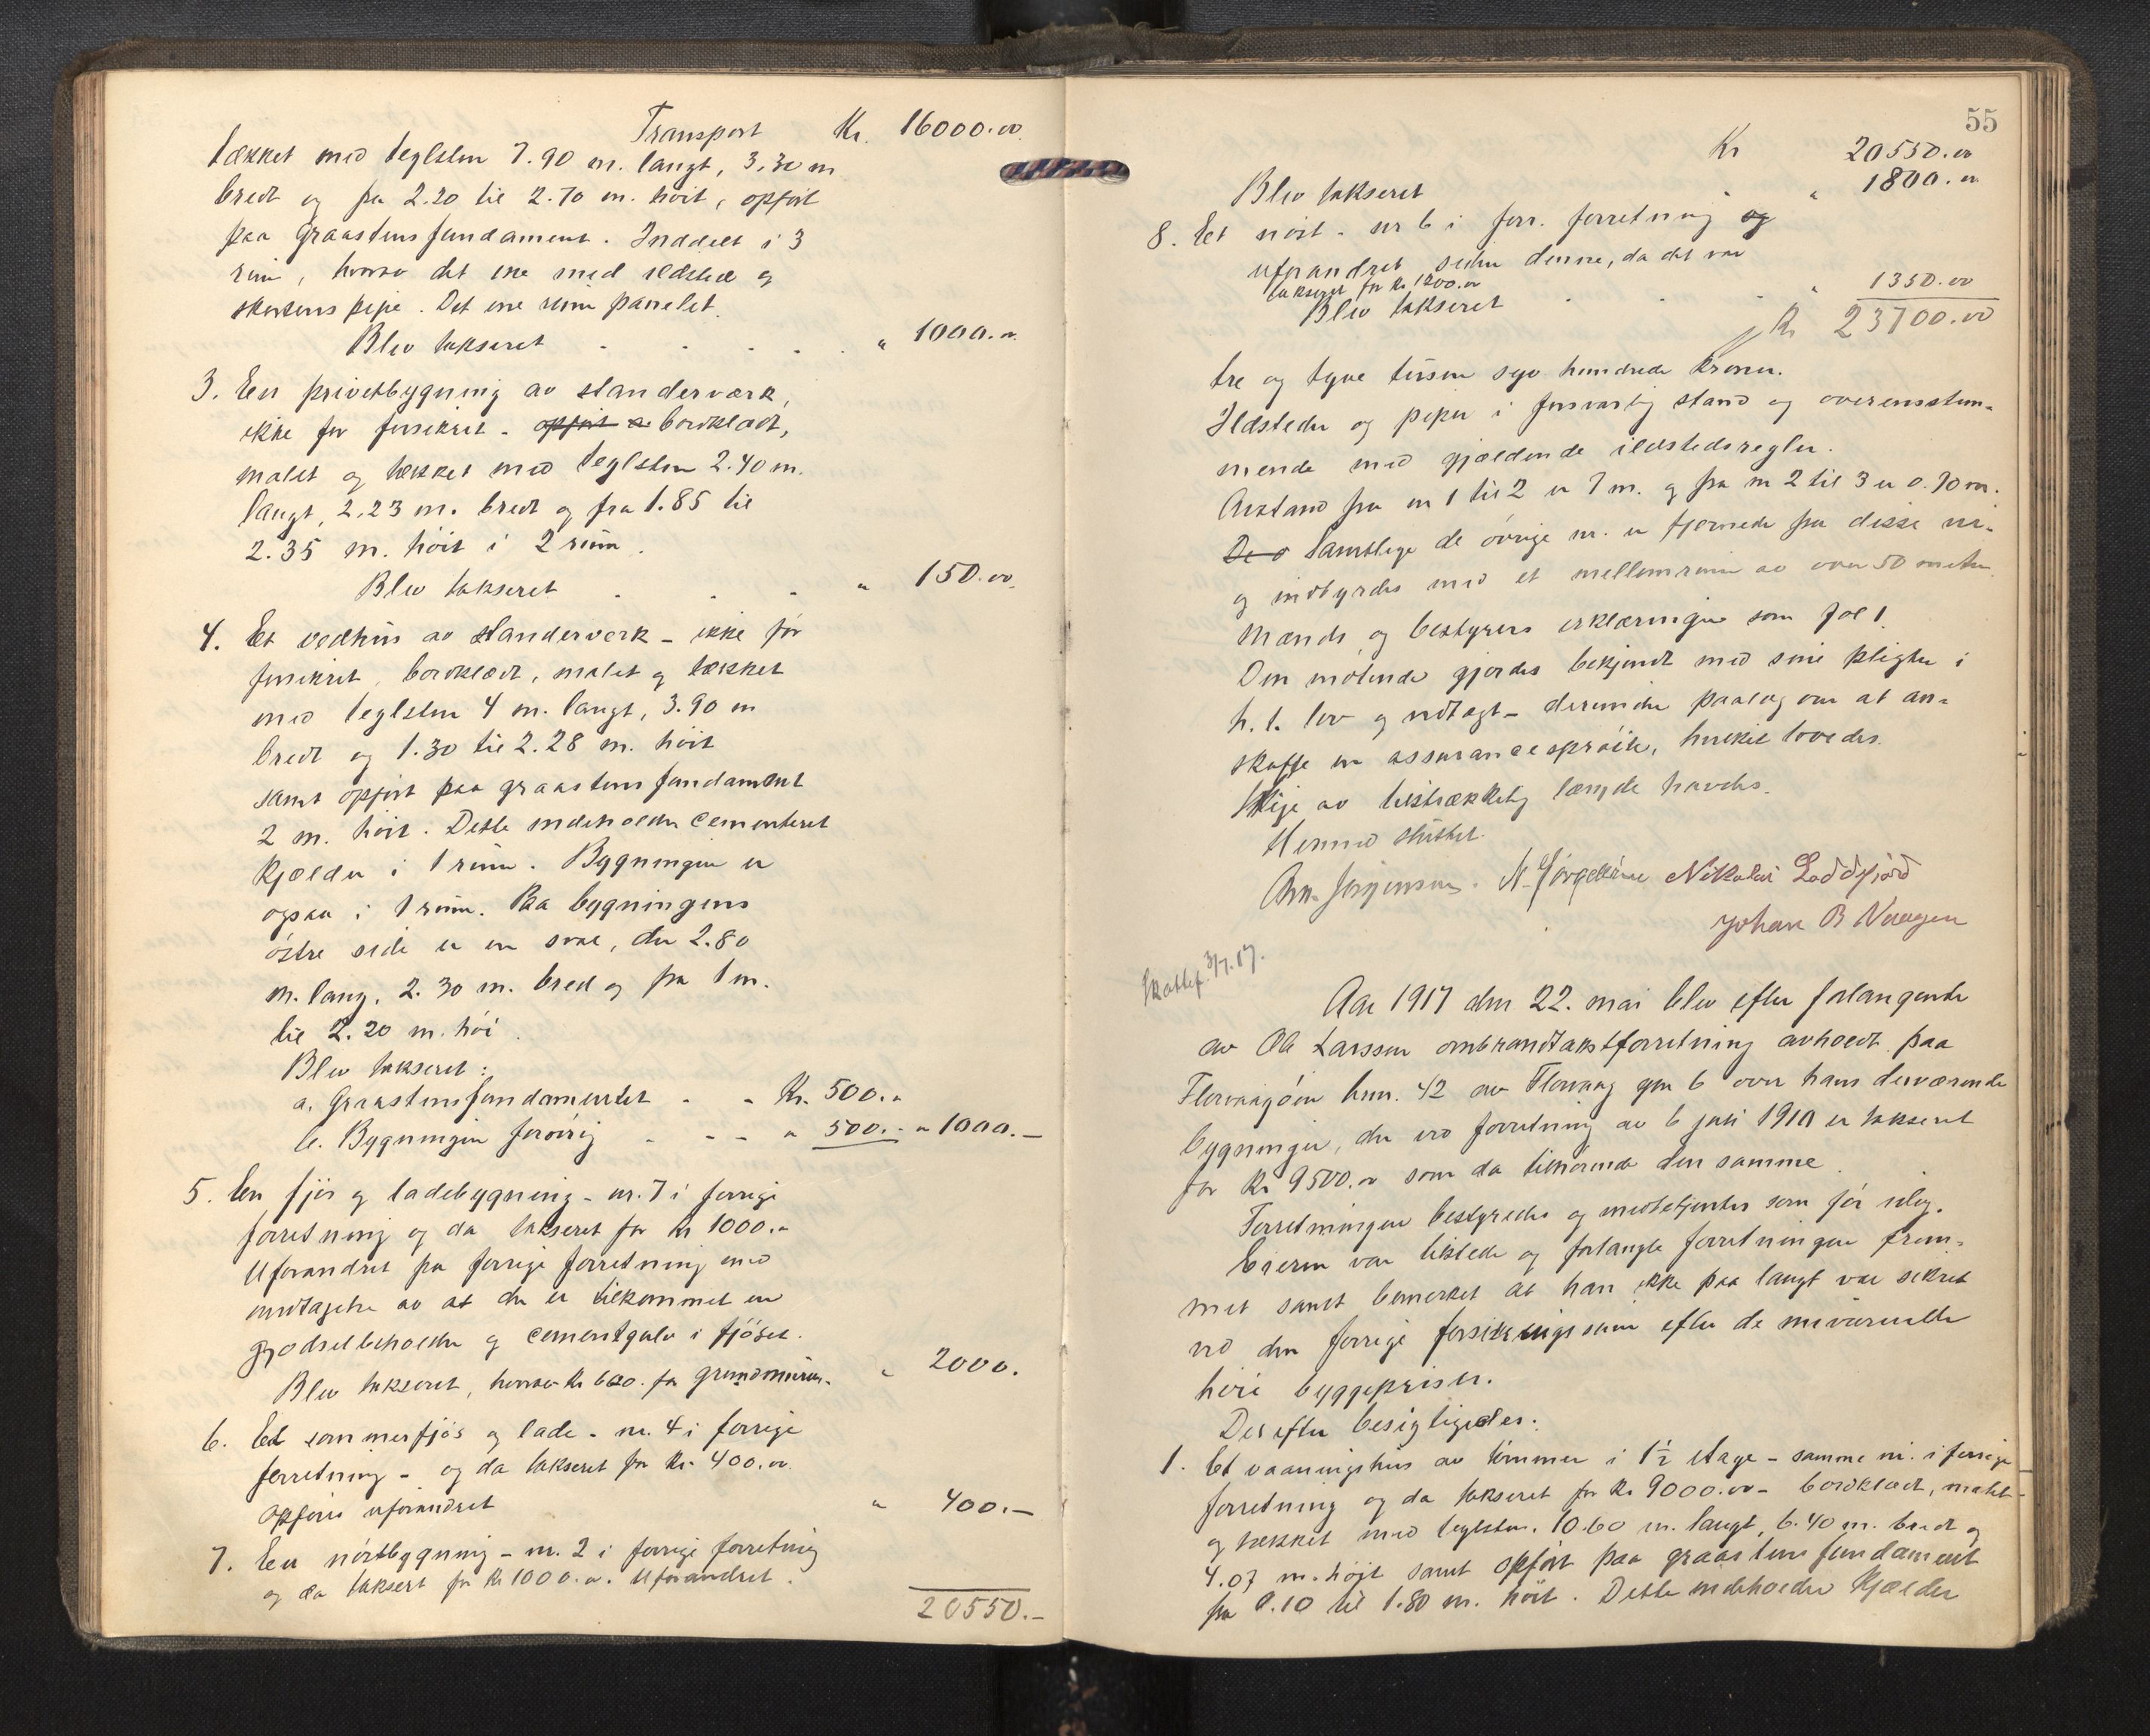 Transport Kr. 16000.00
tækket med teglsten 7.90 m. langt, 3.30 m
bredt og fra 2.20 til 2.70 m. höit, opfört
paa graastensfundament. Inddelt i 3
rum, hvorav det ene med ildsted og
skorstenspipe. Det ene rum panelet.
Blev takseret " 1000.00
3. En privetbygning av standerværk,
ikke før forsikret - opført a bordklædt,
malet og tækket med teglsten 2.40 m.
langt, 2.23 m. bredt og fra 1.85 til
2.35 m. höit i 2 rum.
Blev takseret " 150.00
4. Et vedhus av standerverk - ikke för
forsikret, bordklædt, malet og tækket
med teglsten 4 m. langt, 3.90 m
bredt og 1.30 til 2.28 m. höit
samt opført paa graastensfundament
2 m. höit. Dette indeholder cementeret
kjælder i 1 rum. Bygningen er
ogsaa i 1 rum. Paa bygningens
östre side er en sval, der 2.80
m. lang, 2.30 m. bred og fra 1 m.
til 2.20 m. höi.
Blev takseret:
a. Graastensfundamentet - - Kr. 500.-
b. Bygningen forövrig - - - " 500.- " 1000.-
5. En fjös og ladebygning - nr. 7 i forrige
forretning og da takseret for kr 1000.-
Uforandret fra forrige forretning med
undtagelse av at der er tilkommet en
gjødselbeholder og cementgulv i fjöset.
Blev takseret, hvorav kr 600. for grundmuren. " 2000.
6. Et sommerfjös og lade - nr. 4 i forrige
forretning - og da takseret for kr. 400.00.
Opføres uforandret " 400.-
7. En nöstbygning - nr. 2 i forrige forretning
og da taksert for kr 1000.00. Uforandret.
20550.-
55
Kr 20550.00
Blev takseret " 1800.00
8. Et nöst - nr 6 i forr. forretning og
uforandret siden denne, da det var
takseret for kr 1200.00
Blev takseret " 1350.00
Kr 23700.00
tre og tyve tusen syv hundrede kroner.
Ildsteder og piper i forsvarlig stand og overensstem-
mende med gjældende ildstedsregler.
Avstand fra nr 1 til 2 er 7 m. og fra nr 2 til 3 er 0.70 m.
De ø Samtlige de övrige nr. er fjernede fra disse nr.
og indbyrdes med et mellemrum av over 50 meter.
Mænds og bestyrers erklæringer som fol 1.
Den mötende gjordes bekjendt med sine pligter i
h. t. lov og vedtægt - derunder paalæg om at an-
skaffe en assurancespröite, hvilket lovedes.
Stige av tilstrækkelig længde havdes.
Hermed sluttet.
Chr. Jørgensen. N. Nikolai Loddfjord
Johan B Vaagen
Skattef. 3/7.17.
Aar 1917 den 22. mai blev efter forlangende
av Ole Larssen ombrandtakstforretning avholdt paa
Florvaagöen bnr. 42 av Florvaag gnr 6 over hans derværende
bygninger, der ved forretning av 6 juli 1910 er takseret
for kr 9500.00 som da tilhörende den samme.
Forretningen bestyredes og meddeltjentes som för idag.
Eieren var tilstede og forlangte forretningen frem-
met samt bemerket at han ikke paa langt var sikret
ved den forrige forsikringssum efter de nuværende
höie byggepriser.
Derefter besigtigedes:
1. Et vaaningshus av tömmer i 1½ etage - samme nr. i forrige
forretning og da takseret for kr 9000.00 - bordklædt, malet
og tækket med teglsten. 10.60 m. langt, 6.40 m. bredt og
4.07 m. höit samt opfört paa graastensfundament
fra 0.10 til 1.80 m. höit. Dette indeholder kjælder